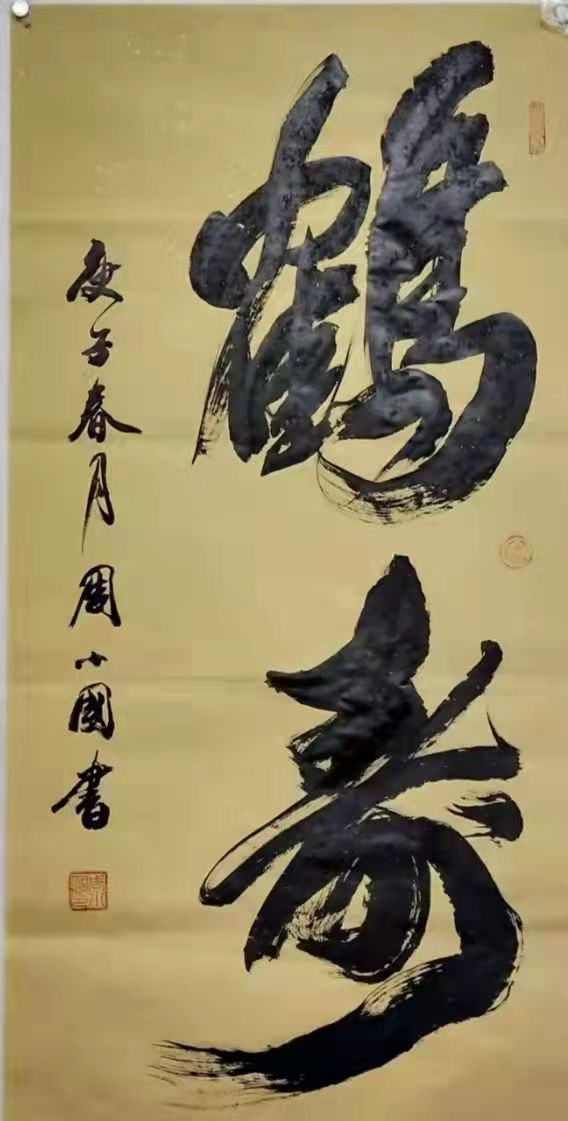 鶴壽
庚子春月周小國書